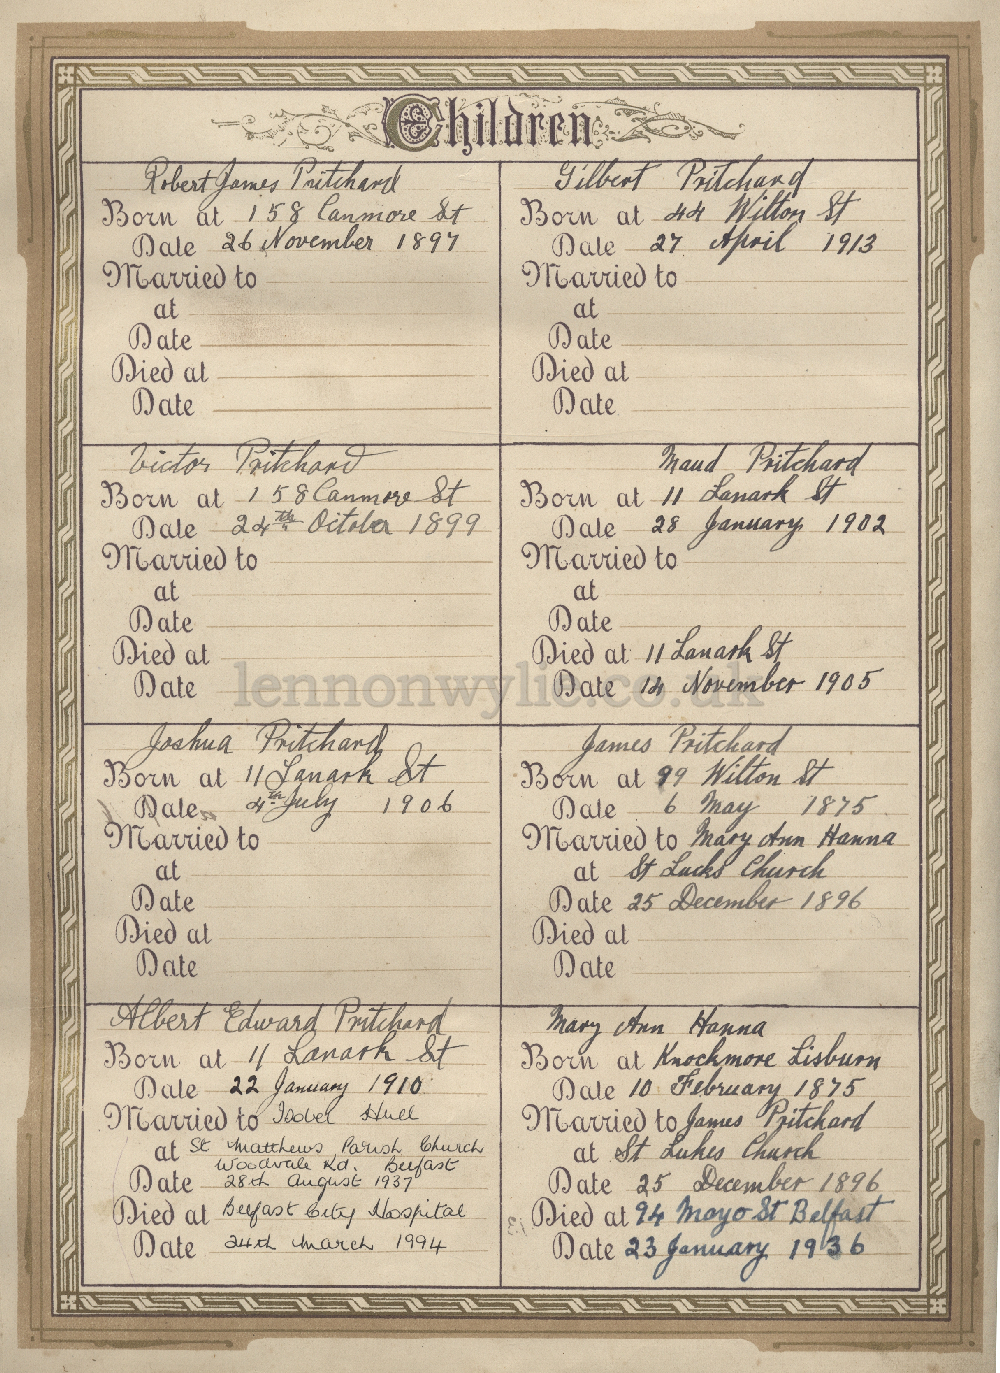 Children
Robert James Pritchard
Born at 158 Canmore St
Date 26 November 1897
Married to
at
Date
Died at
Date
Gilbert Pritchard
Born at 44 Wilton St
Date 27 April 1913
Married to
at
Date
Died at
Date
Victor Pritchard
Born at 158 Canmore St
Date 24th Octobar 1899
Married to
at
Date
Died at
Date
Maud Pritchard
Born at 11 Lanark St
Date 28 January 1902
Married to
at
Date
Died at 11 Lanark St
Date 14 November 1905
lennonwylie.co.uk
Joshua Pritchard
Born at 11 Lanark St
Date 4th July 1906
Married to
at
Date
Died at
Date
James Pritchard
Born at 99 Wilton St
Date 6 May 1875
Married to Mary Ann Hanna
at St Lucks Church
Date 25 December 1896
Died at
Date
Albert Edward Pritchard
Born at 11 Lanark St
Date 22 January 1910
Married to Isobel Hull
at St Matthews Parish Church
Woodvale Rd. Belfast
Date 28th August 1937
Died at Belfast City Hospital
Date 24th March 1994
Mary Ann Hanna
Born at Knockmore Lisburn
Date 10 February 1875
Married to James Pritchard
at St Lukes Church
Date 25 December 1896
Died at 94 Mayo St Belfast
Date 23 January 1936